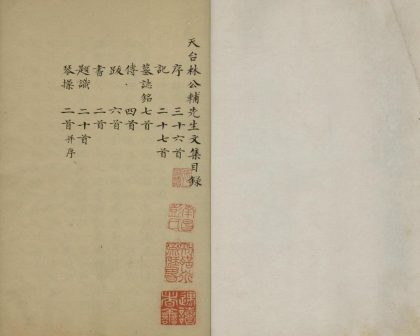 天台林公輔先生文集目錄
序 三十六首
記 二十七首
墓誌銘七首
傳 四首
跋 六首
書 二首
題識 二十首
琴操 二首并序